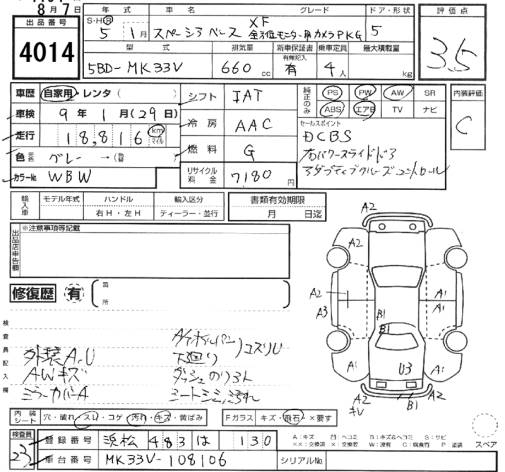 8月7日
出品番号 年式 車名 グレード ドア・形状 評価点
4014
S・H・R 5年 1月 スペーシア ベース XF 5 3.5
全方位モニター用カメラPKG
型式 排気量 新車保証書 乗車定員 最大積載量
5BD-MK33V 660cc 有 4人 kg
車歴 自家用・レンタ( ) シフト IAT 純正のみ PS PW AW SR 内装評価
車検 9年 1月(29日) ABS エアB TV ナビ C
走行 18,816 km マイル 冷房 AAC セールスポイント
DCBS
色 グレー → 燃料 G 右パワースライドドア
カラーNo. WBW リサイクル料金 7180円 アダプティブクルーズコントロール
輸入車 モデル年式 ハンドル 輸入区分 書類有効期限
右H・左H ディーラー・並行 月 日迄
出品店申告欄 ※注意事項等記載
修復歴 有 箇所
検査員記入欄
外装A.U
AWキズ
ミラーカバーA
下廻り コスリU
A2
A2
A2
A3
A1
A1
A1
B1
B1
U3
A2
B1
A2
キレ
内装シート 穴・破れ・スレ・コゲ 汚れ・キズ・黄ばみ Fガラス キズ・飛石×要す
検査員 23
登録番号 浜松 483 は 130
車台番号 MK33V-108106 シリアルNo.
A:キズ U:ヘコミ B:キズ&ヘコミ S:サビ
スペア